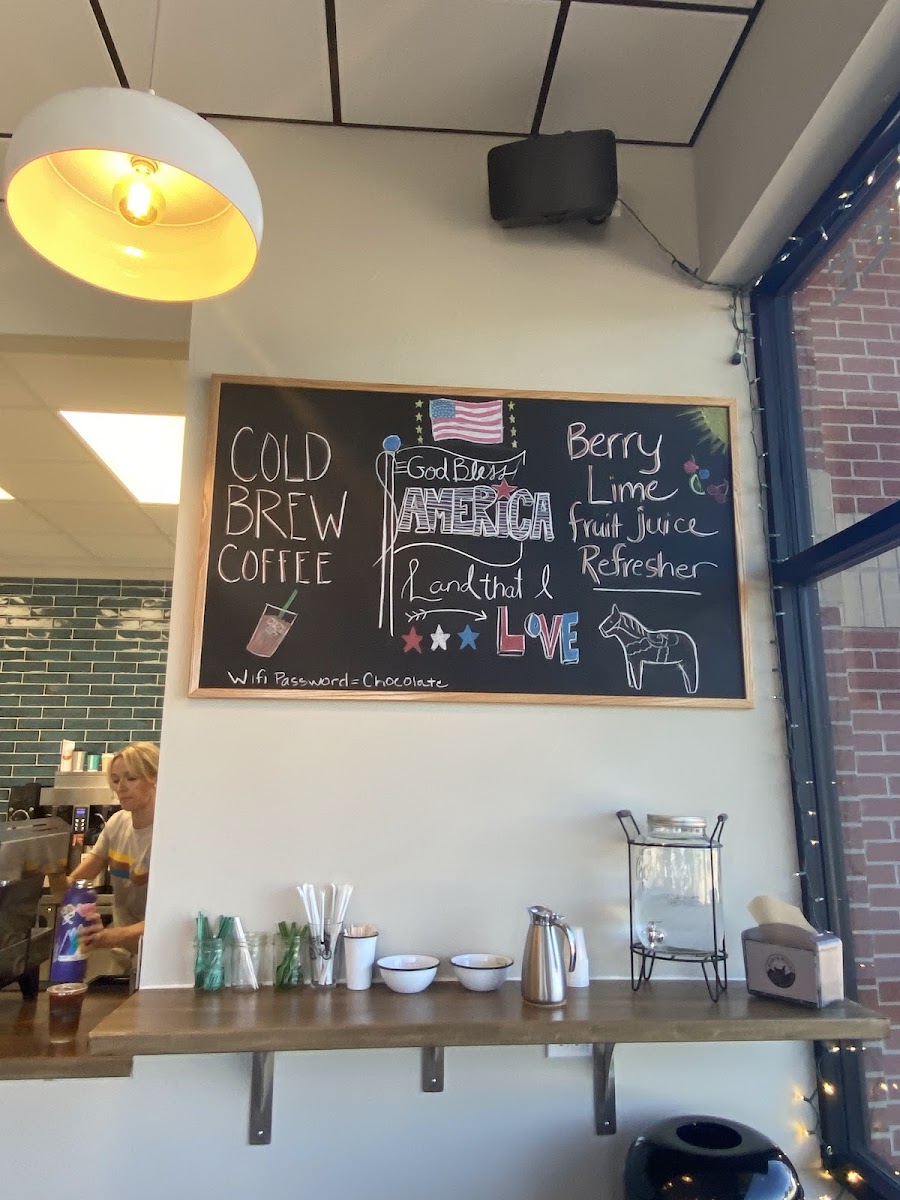 COLD
BREW
COFFEE
Wifi Password=Chocolate
God Bless
AMERICA
Land that I
LOVE
Berry
Lime
fruit juice
Refresher